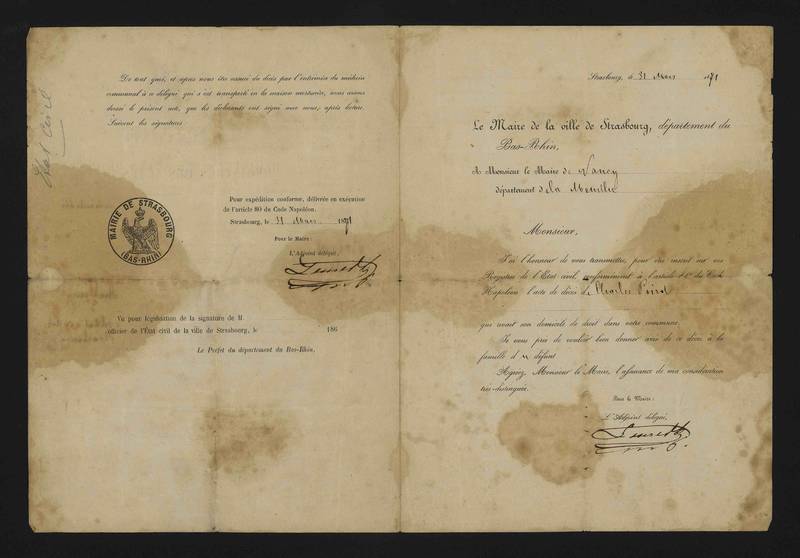 De tout quoi, et après nous être assuré du décès par l'entremise du médecin
communal à ce délégué qui s'est transporté en la maison mortuaire, nous avons
dressé le présent acte, que les déclarants ont signé avec nous, après lecture.
Suivent les signatures
Etat civil
Pour expédition conforme, délivrée en exécution
de l'article 80 du Code Napoléon.
Strasbourg, le 31 Mars 1871
Pour le Maire:
L'Adjoint délégué:
MAIRIE DE STRASBOURG
(BAS-RHIN)
Vu pour légalisation de la signature de M
officier de l'État civil de la ville de Strasbourg, le 186
Le Préfet du département du Bas-Rhin,
Strasbourg, le 31 Mars 1871
Le Maire de la ville de Strasbourg, département du
Bas-Rhin,
A Monsieur le Maire de Nancy
département de la Meurthe
Monsieur,
J'ai l'honneur de vous transmettre, pour être inscrit sur vos
Registres de l'État civil, conformément à l'article 80 du Code
Napoléon, l'acte de décès de Charles
qui avait son domicile de droit dans votre commune.
Je vous prie de vouloir bien donner avis de ce décès à la
famille d u défunt
Agréez, Monsieur le Maire, l'assurance de ma considération
très-distinguée.
Pour le Maire:
L'Adjoint délégué,